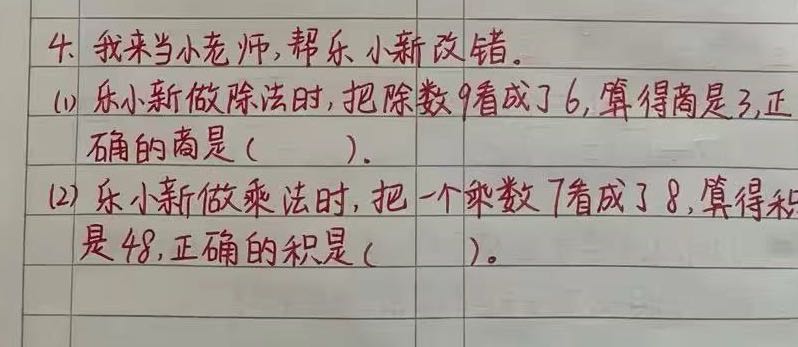 4. 我来当小老师,帮乐小新改错。
(1) 乐小新做除法时,把除数9看成了6,算得商是3,正
确的商是( )。
(2) 乐小新做乘法时,把一个乘数7看成了8,算得积
是48,正确的积是( )。